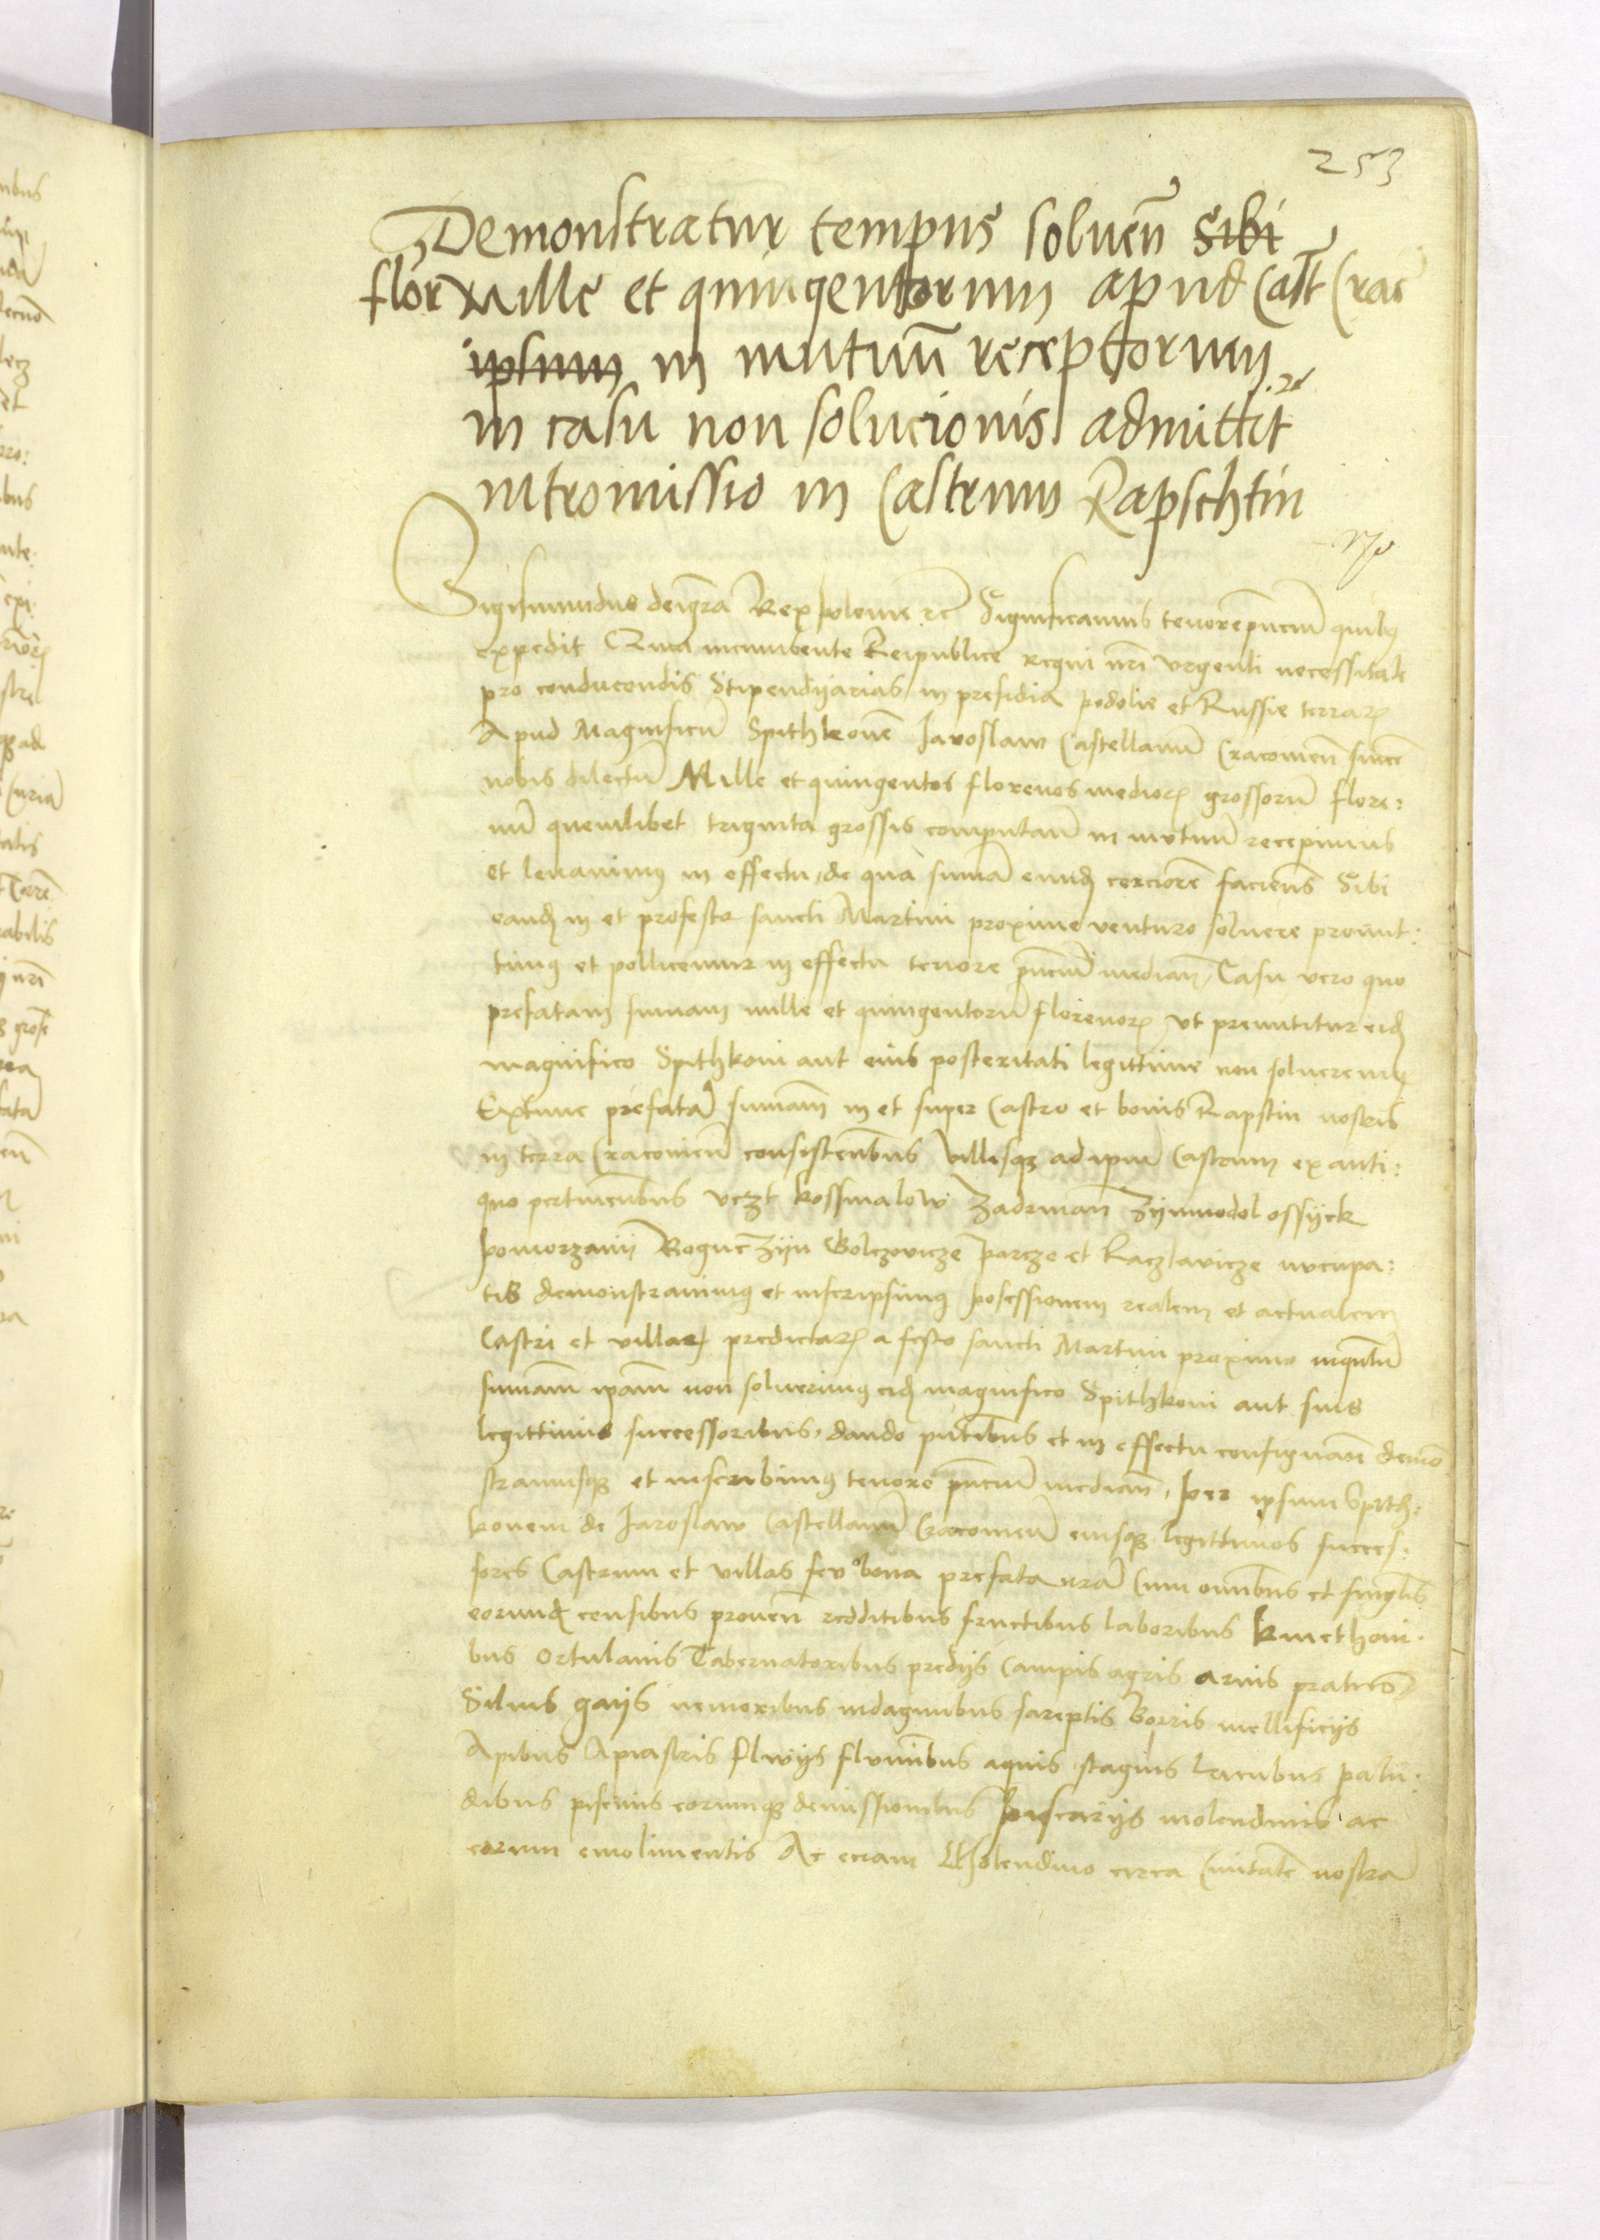 253
Demonstratur tempus soluen̄ sibi
flor Mille et quingentorum apud Cast Crac
ipsum in mutuū receptorum
in casu non solucionis admittit
intromissio in Castrum Rapschtin
Sigismundus dei gr̄a Rex polonie rc̄ Significamus tenore pn̄ciū quibꝰ
expedit Quia incumbente Reipublice regni nr̄i vrgenti necessitate
pro conducendis Stipendijarias in presidia podolie et Russie terrarꝫ
Apud Magnificū Spithkonē Jaroslaw Castellanū Cracouien̄ sincē
nobis dilectū Mille et quingentos florenos mediorꝫ grossorū flore:
nū quemlibet triginta grossis computan̄ in mutuū recepimus
et leuauimꝰ in effectu, de qua summa eundꝫ cerciorē facien̄s Sibi
eandꝫ in et profesto sancti Martini proxime venturo soluere promit:
timꝰ et pollicemur in effectu tenore pn̄ciū median̄, Casu vero quo
prefatam summam mille et quingentorū florenorꝫ vt premittitur eidꝫ
magnifico Spithkoni aut eius posteritati legittime non solueremꝰ
Extunc prefatā summam̄ in et super Castro et bonis Rapstin nostris
in terra Cracouien̄ consisten̄bus villisqꝫ ad ipm̄ Castrum ex anti:
quo pertinen̄bus vczt kossmalow Zadrman Zijmmodol ossijek
pomorzanij Rogucz Zijn Golczovicze parcze et Raczlavicze nucupa:
tis demonstrauimꝰ et inscripsimꝰ possessionem realem et actualem
Castri et villarꝫ predictarꝫ a festo sancti Martini proximo inqn̄tū
summam̄ ipam̄ non soluerimꝰ eidꝫ magnifico Spithkoni aut suis
legittimis successoribus, dando pn̄tibus et in effectu consignan̄ demō
stramusqꝫ et inscribimꝰ tenore pn̄ciū median̄, per ipsum Spith:
konem de Jaroslaw Castellanū Cracouien̄ eiusqꝫ legittimos succes:
sores Castrum et villas seu bona prefata nr̄a Cum omn̄bus et singl̄is
eorundꝫ censibus prouen̄ redditibus fructibus laboribus kmethoni:
bus Ortulanis Tabernatoribus predijs Campis agris aruis pratis
Siluis gaijs nemoribus indaginibus fareptis Borris mellificijs
Apibus Apiastris flwijs fluminibus aquis stagnis lacubus palu:
dibus piscinis eorumqꝫ demissionibus piscarijs molendinis ac
eorum emolimentis Ac eciam Molendino circa Ciuitatē nostrā